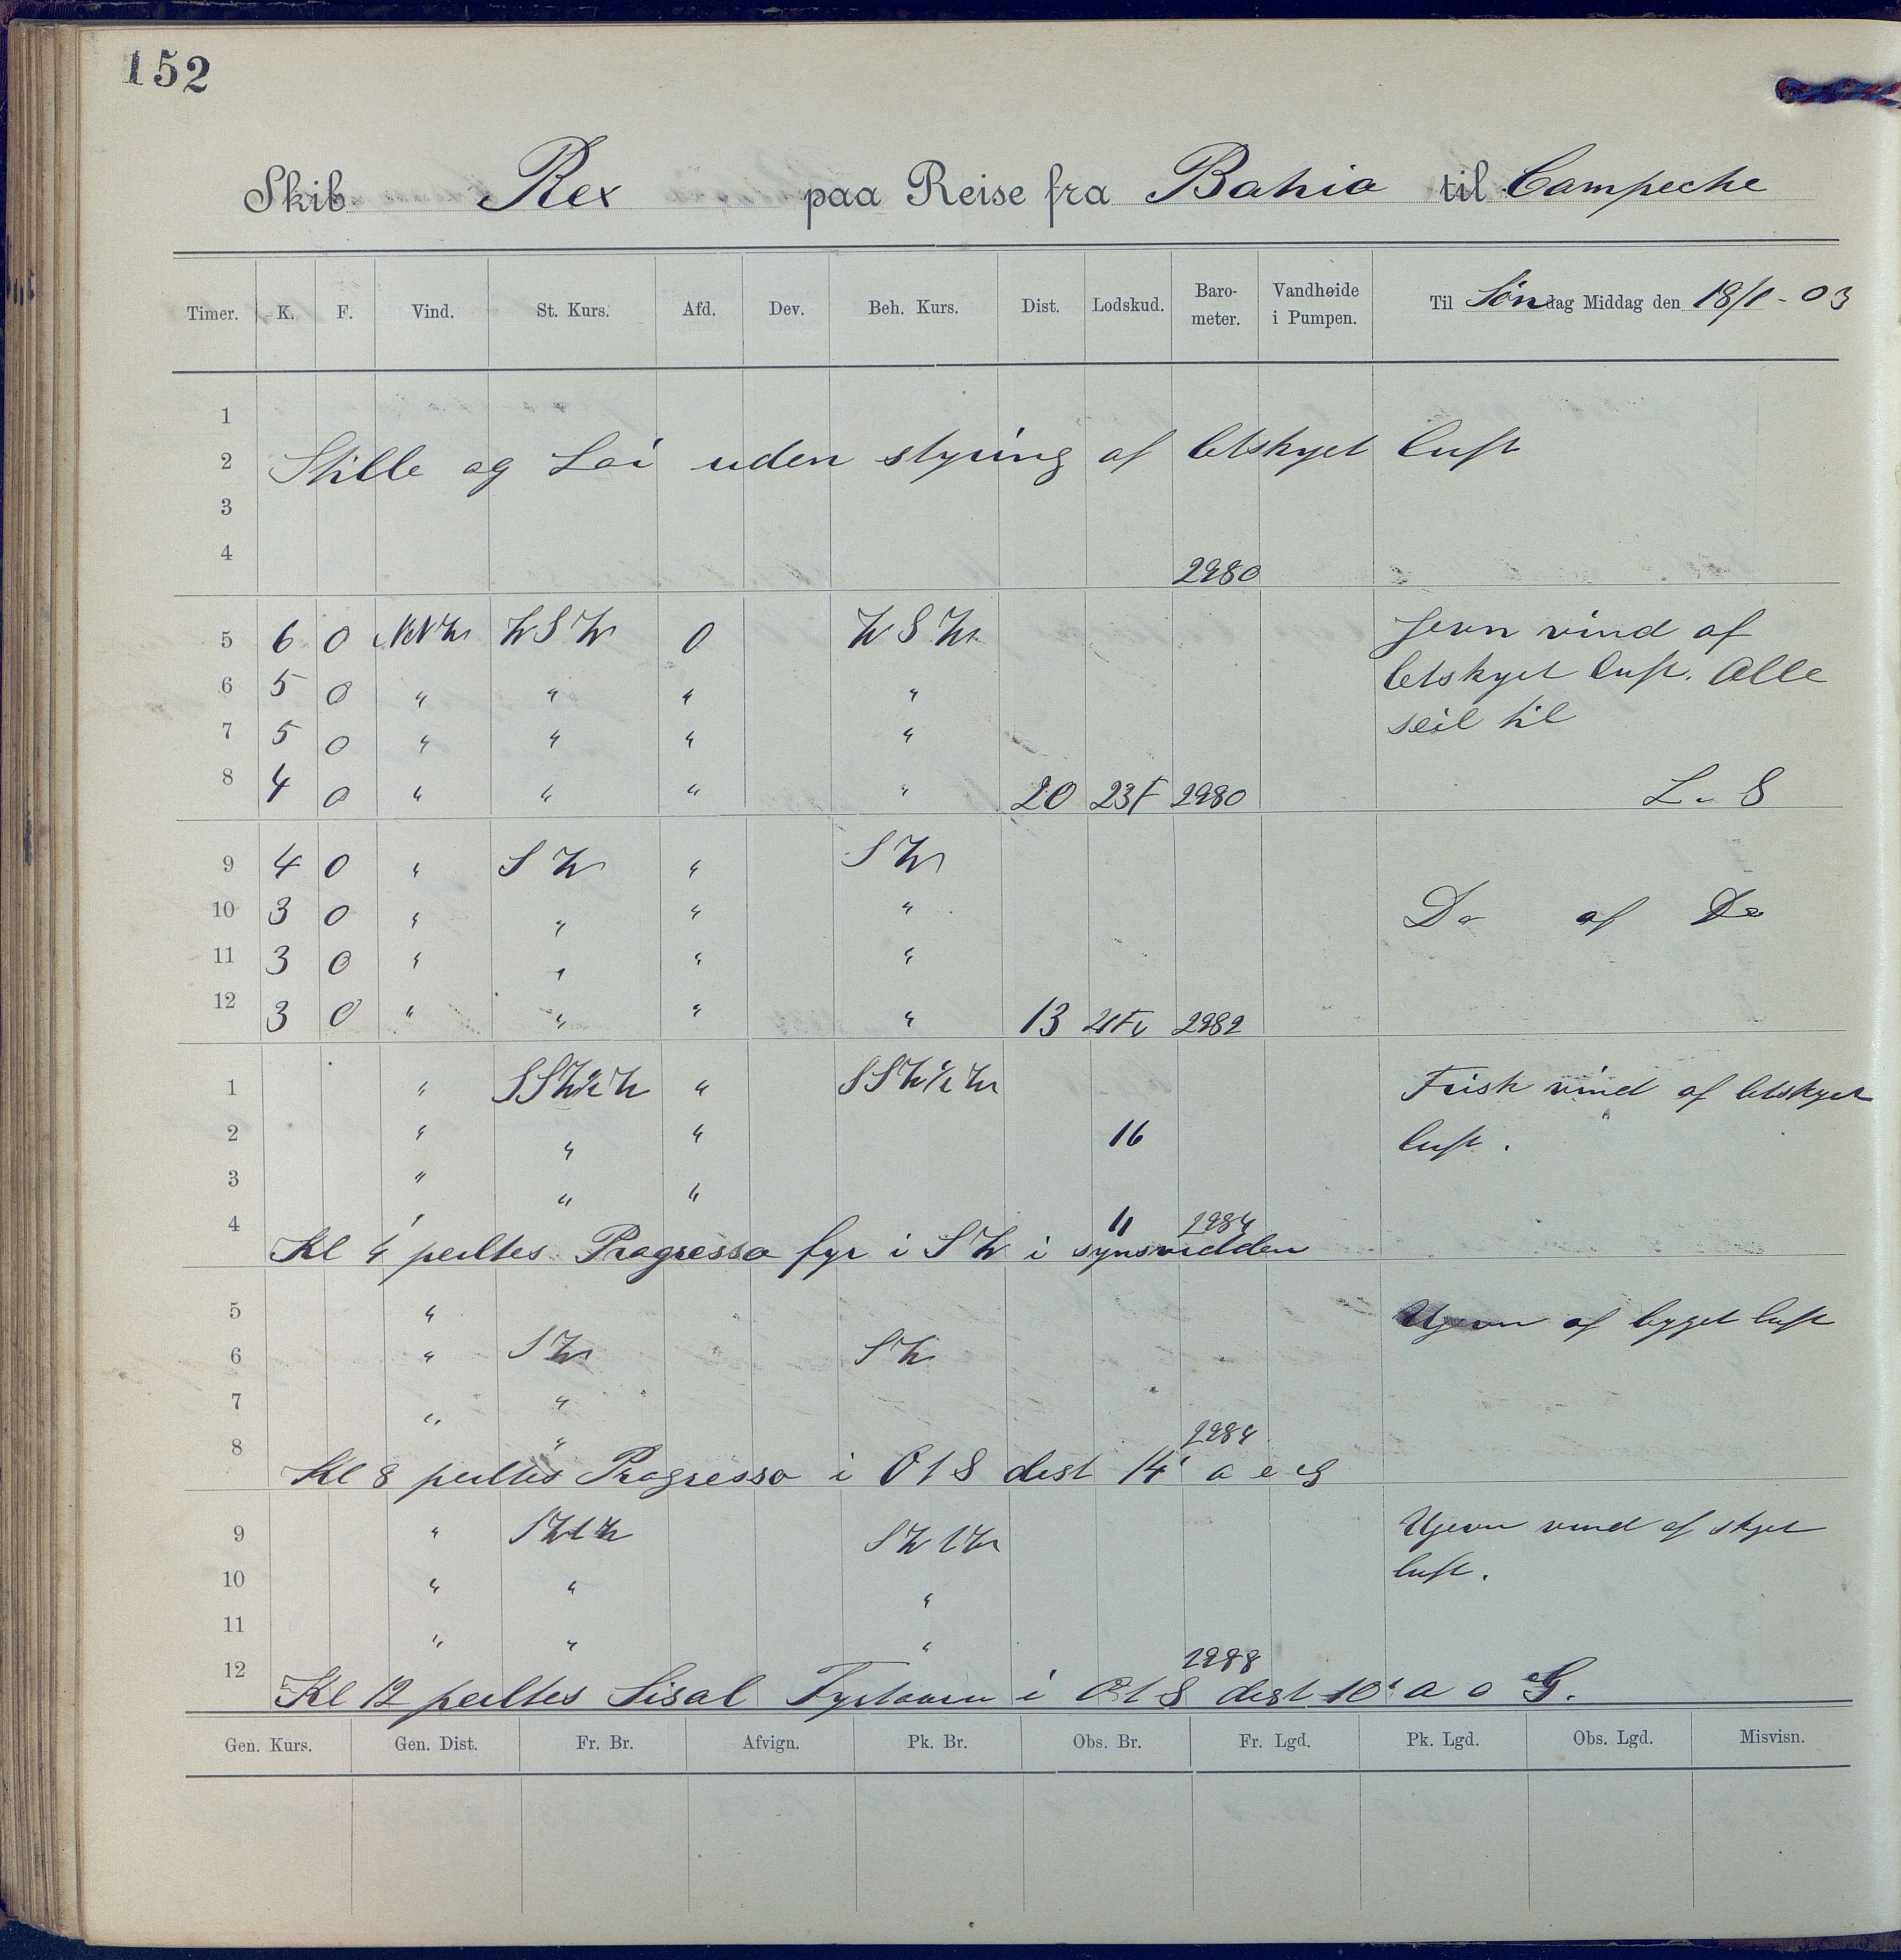 152
Skib Rex paa Reise fra Bahia til Campeche
Timer. K. F. Vind. St. Kurs. Afd. Dev. Beh. Kurs. Dist. Lodskud. Baro-meter. Vandhøide i Pumpen. Til Søndag Middag den 18/1 - 03
1
2 Stille og Lei uden styring af letskyet luft
3
4 2980
5 6 0 NNW WSW 0 WSW Jevn vind af
6 5 0 " " " " letskyet luft. Alle
7 5 0 " " " " seil til
8 4 0 " " " " 20 23F 2980 L. S
9 4 0 " SW " SW
10 3 0 " " " " Do af Do
11 3 0 " " " "
12 3 0 " " " " 13 21Fv 2982
1 " SSW½W " SSW½W Frisk vind af letskyet
2 " " " 16 luft.
3 " " "
4 " 11 2984
Kl 4 peiltes Progresso fyr i SW i synsvidden
5 " Ujevn af bygget luft
6 " SW SW
7 " "
8 " 2984
Kl 8 peiltes Progresso i O t S dist 14' a e G
9 " SWtW SWtW Ujevn vind af skyet
10 " " " luft.
11 " " "
12 2988
Kl 12 peiltes Sisal Fyrtaarn i O t S dist 10' a e G.
Gen. Kurs. Gen. Dist. Fr. Br. Afvign. Pk. Br. Obs. Br. Fr. Lgd. Pk. Lgd. Obs. Lgd. Misvisn.